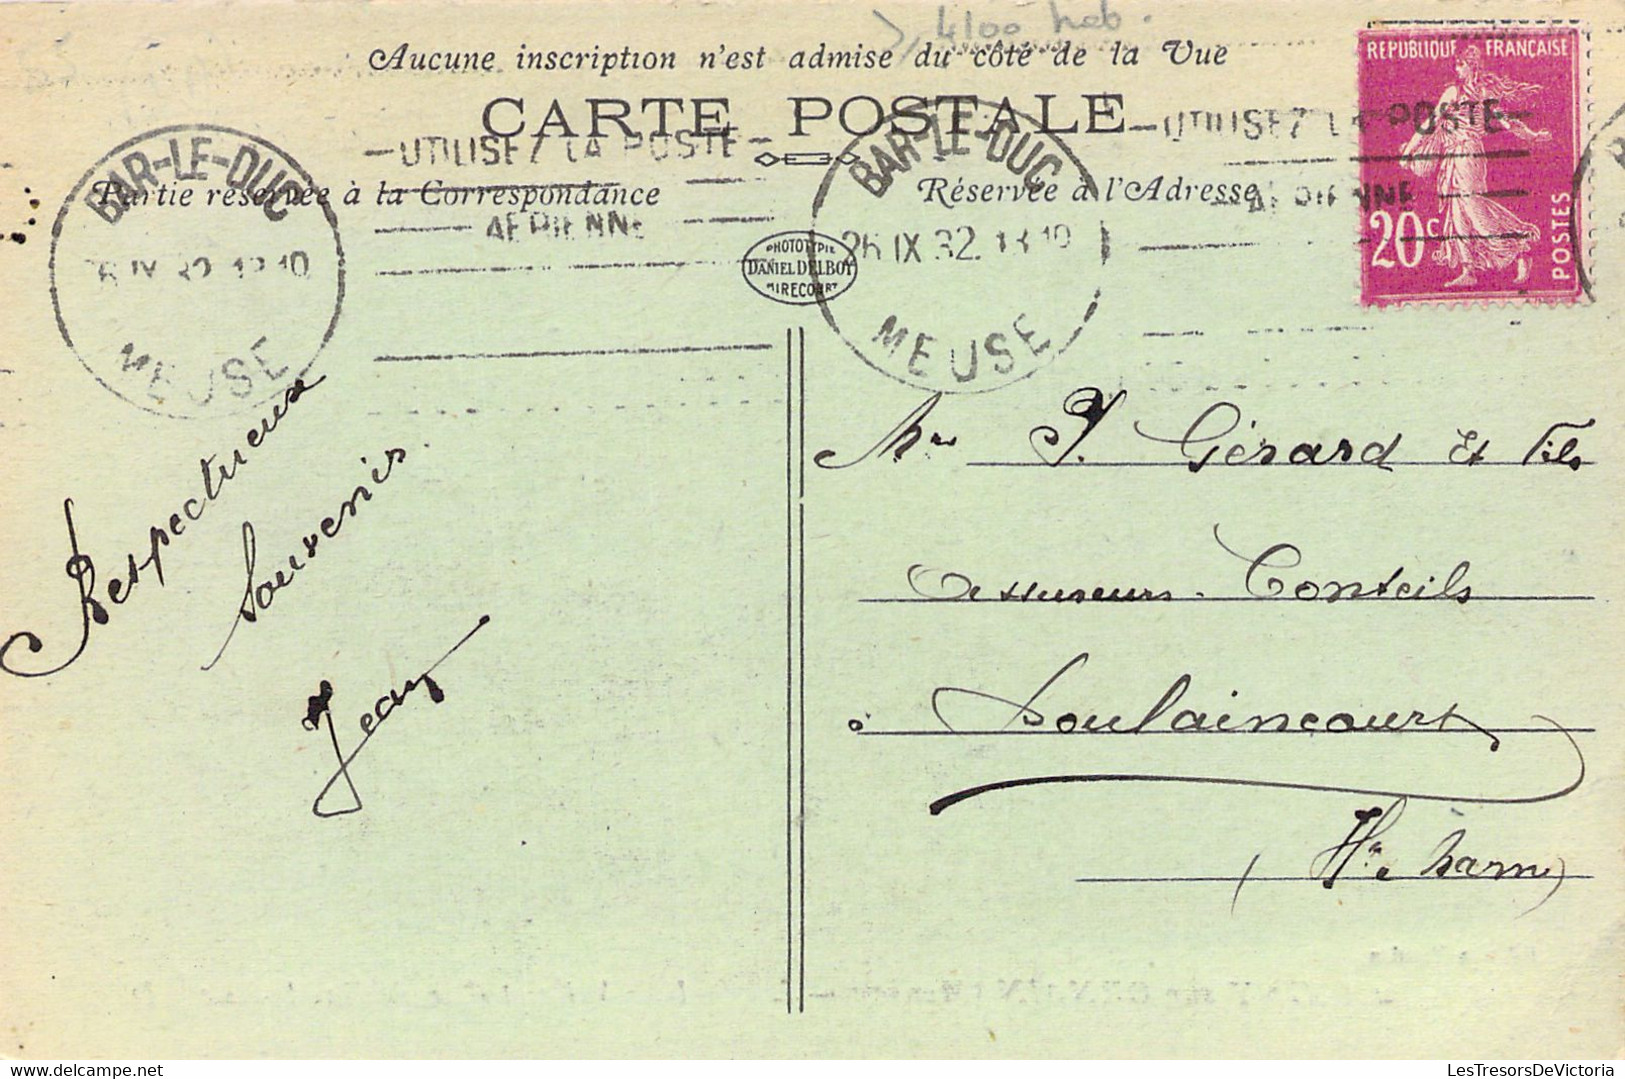 4100 hab.
Aucune inscription n'est admise du côté de la Vue
CARTE POSTALE
Partie réservée à la Correspondance
Réservée à l'Adresse
BAR-LE-DUC
26 IX 32 13 10
MEUSE
UTILISEZ LA POSTE
AERIENNE
BAR-LE-DUC
26 IX 32 13 10
MEUSE
UTILISEZ LA POSTE
AERIENNE
REPUBLIQUE FRANÇAISE
20c
POSTES
PHOTOTYPIE
DANIEL DELBOY
MIRECOURT
Respectueux
Souvenir.
Jean
Mrs P. Gérard et Fils
Assureurs-Conseils
à Doulaincourt
(Hte Marne)
LesTresorsDeVictoria